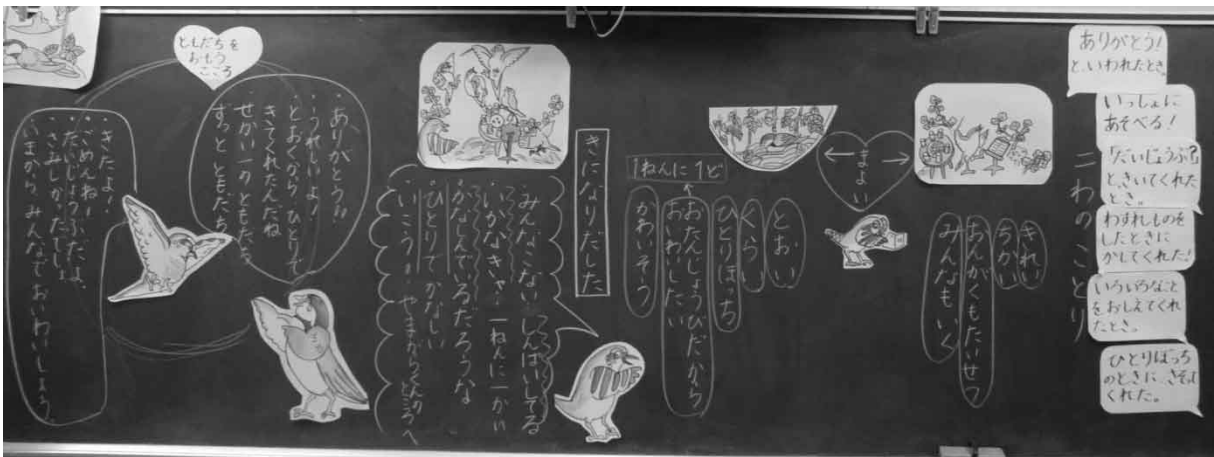 ありがとう!
と、いわれたとき。
いっしょに
あそべる!
「だいじょうぶ?」
と、きいてくれた
とき。
わすれものを
したときに
かしてくれた!
いろいろなこと
をおしえてくれ
たとき。
ひとりぼっち
のときに、さそって
くれた。
二わのことり
きれい
ちかい
おんがくもたいせつ
みんなもいく
まよい
とおい
くらい
ひとりぼっち
おたんじょうびだから
おいわいしたい
1ねんに1ど
かわいそう
きになりだした
みんなこない しんぱいしてる
いかなきゃ 一ねんに一かい
かなしんでいるだろうな
ひとりで かなしい
いこう!! やまがらくんの
ところへ
ともだちを
おもう
こころ
・ありがとう!!
・うれしいよ!
とおくから ひとりで
きてくれたんだね
せかい一の ともだちだ
ずっと ともだち
・きたよ!
・ごめんね!
・だいじょうぶだよ。
・さみしかったでしょ
いまから、みんなでおいわいしよう